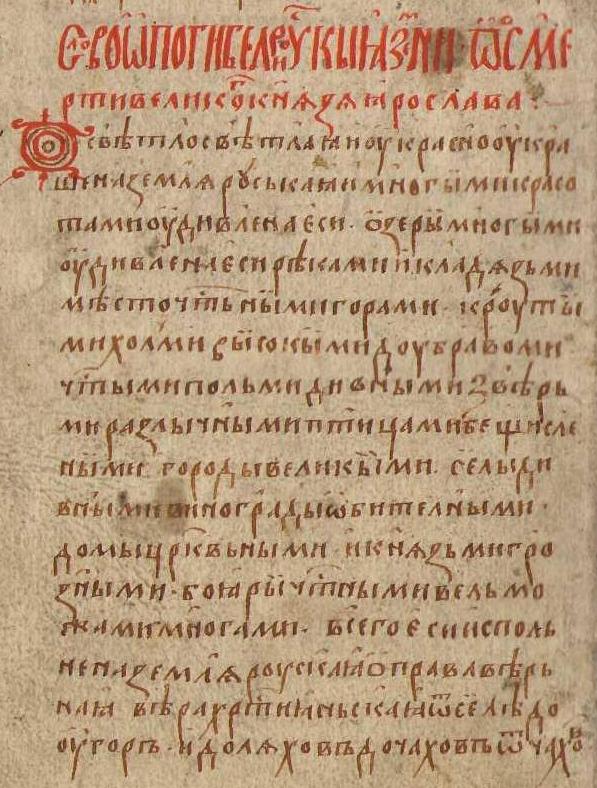 Слово ѿ погибели Рускыꙗ земли ѿ сме
рти великоⷢ кнѧзѧ ꙗрослава :
Ѻ свѣтло свѣтлаꙗ и оукрасно оукра
шена землѧ руськаꙗ и многыми красо
тами оудивлена еси · ѻзеры многыми
оудивлена еси рѣками и кладѧзьми
мѣсточтьными горами · кроуты
ми холми высокыми доубравоми
чⷭтыми польми дивными звѣрь
ми разлычными птицами бещисле
ными городы великыми · селы ди
вными винограды ѡбителными ·
домы црⷦвьными · и кнѧзьми гро
зными · боꙗры чⷭтными вельмо
жами многами · всего еси испол
нена землѧ роускаꙗ ѻ прававѣрь
наꙗ вѣра хрⷭтиꙗньскаꙗ ѿселѣ до
оугоръ · и до лѧховъ до чаховъ ѿ чахоⷡ